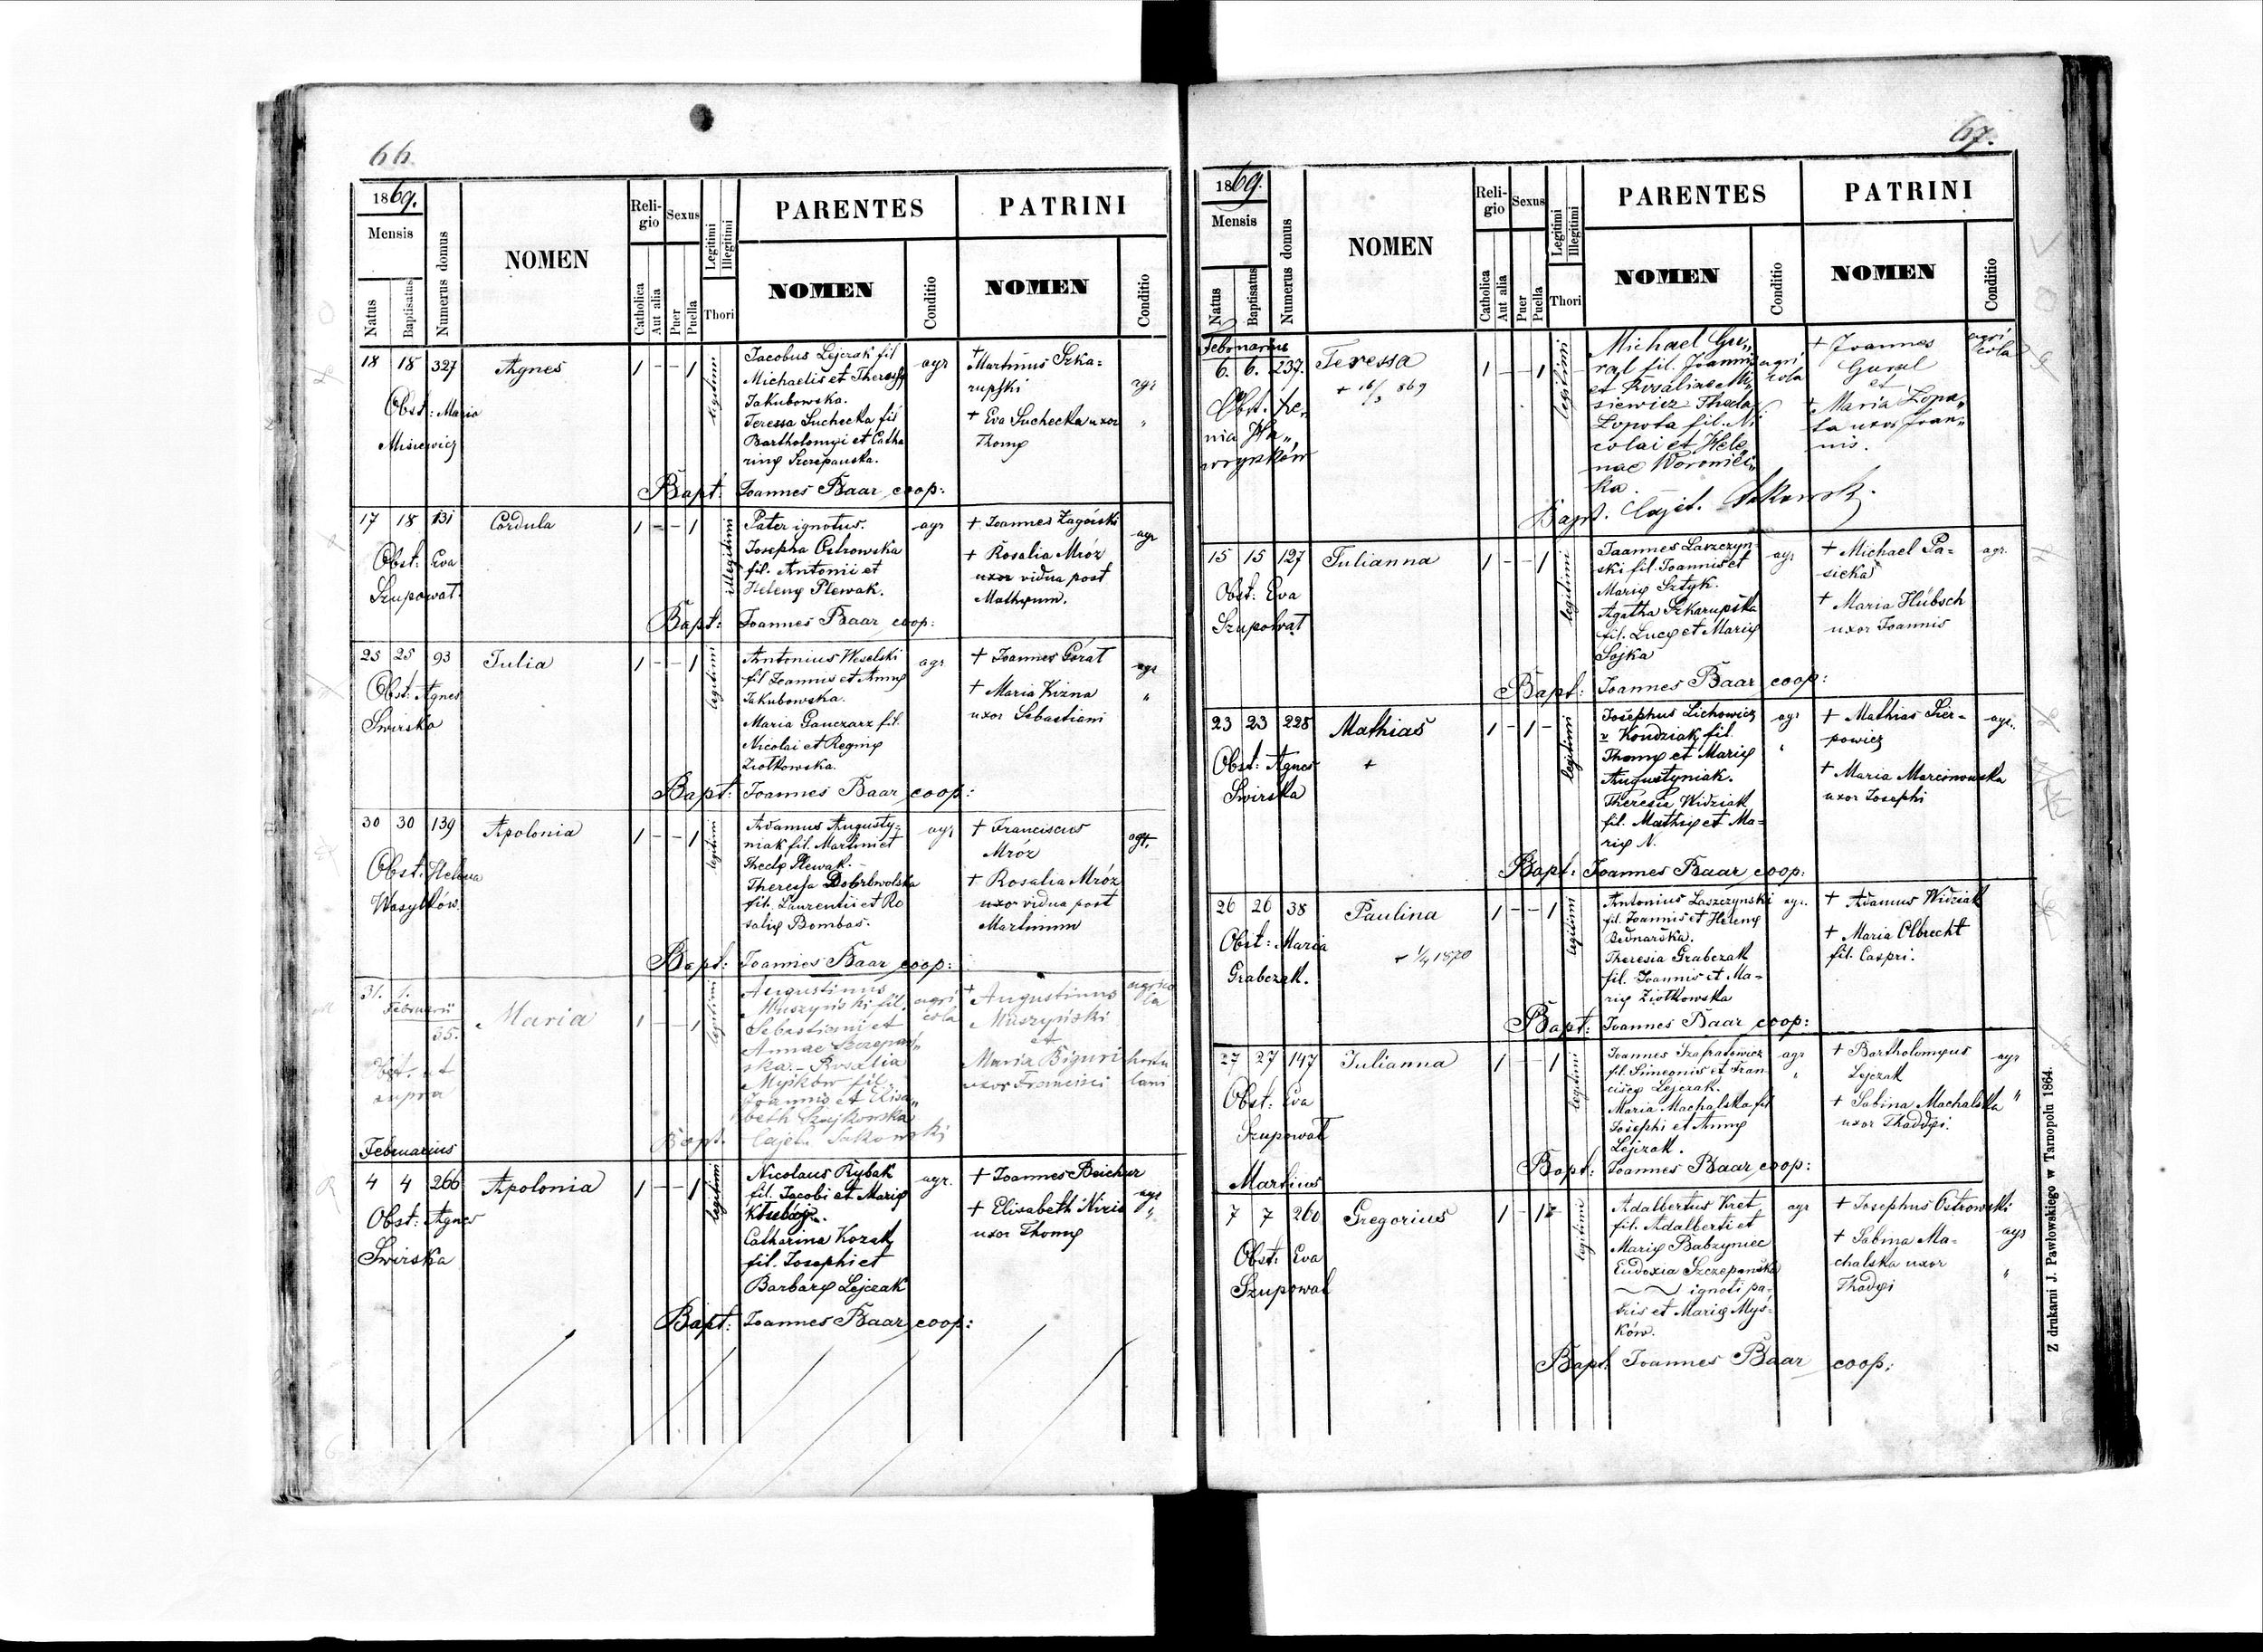 66.
1869.
Mensis
Natus
Baptisatus
Numerus domus
NOMEN
Reli-
gio
Catholica
Aut alia
Sexus
Puer
Puella
Legitimi
Illegitimi
Thori
PARENTES
NOMEN
Conditio
PATRINI
NOMEN
Conditio
18 18 327
Obst: Maria
Misiewicz
Agnes
1 - - 1
legitimi
Jacobus Lejczak fil
Michaelis et Theressę
Jakubowska.
Teressa Suchecka fil
Bartholomęi et Catha
rinę Szczepanska.
agr
+
Martinus Szka=
rupski
+ Eva Suchecka uxor
Thomę
agr
"
Bapt: Joannes Baar coop:
17 18 131
Obst: Eva
Szupowat.
Cordula
1 - - 1
illegitimi
Pater ignotus.
Josepha Ostrowska
fil. Antonii et
Helenę Plewak.
agr
+ Joannes Zagórski
+ Rosalia Mróz
uxor vidua post
Mathęum.
agr
Bapt: Joannes Baar coop:
25 25 93
Obst: Agnes
Swirska
Julia
1 - - 1
legitimi
Antonius Weselski
fil Joannis et Annę
Jakubowska.
Maria Ganczarz fil.
Nicolai et Reginę
Ziołkowska.
agr
+ Joannes Górat
+ Maria Kizna
uxor Sebastiani
agr
"
Bapt: Joannes Baar coop:
30 30 139
Obst: Helena
Wasylków
Apolonia
1 - - 1
legitimi
Adamus Augusty-
niak fil. Martini et
Theclę Plewak.
Theressa Dobrowolska
fil. Laurentii et Ro
salię Bombas.
agr
+ Franciscus
Mróz
+ Rosalia Mróz
uxor vidua post
Martinum
agr.
Bapt: Joannes Baar coop:
31. 1.
Februarii
35.
Obst. ut
supra
Maria
1 - - 1
legitimi
Augustinus
Muszyński fil.
Sebastiani et
Annae Szczepań„
ska - Rosalia
Myśków fil.
Joannis et Elisa„
beth Szajkowska
agri
cola
+
Augustinus
Muszyński
et
Maria Biguri
uxor Francisci
agrico
la
hortu
lani
Bapt. Cajet. Sakowski
Februarius
4 4 266
Obst: Agnes
Swirska
Apolonia
1 - - 1
legitimi
Nicolaus Rybak
fil. Jacobi et Marię
Catharina Kozak
fil. Josephi et
Barbarę Lejczak
agr.
+ Joannes Beicher
+ Elisabeth Nizio
uxor Thomę
agr
"
Bapt: Joannes Baar coop:
67.
1869.
Mensis
Natus
Baptisatus
Numerus domus
NOMEN
Reli-
gio
Catholica
Aut alia
Sexus
Puer
Puella
Legitimi
Illegitimi
Thori
PARENTES
NOMEN
Conditio
PATRINI
NOMEN
Conditio
Februarius
6. 6. 237.
Obst. Xe„
nia
Teressa
+ 16/3 869
1 - - 1
legitimi
Michael Gu„
ral fil. Joannis
et Rosaliae Mi„
siewicz Theda
Łopota fil. Ni
colai et Hele„
nae Woronic„
ka.
agri
cola
+ Joannes
Gural
et
+ Maria Łopa„
ta uxor Joan„
nis.
agri
cola
Bapt. Cajet. Sakowski
15 15 127
Obst: Eva
Szupowat
Julianna
1 - - 1
legitimi
Joannes Laszczyn
ski fil. Joannis et
Marię Sztyk.
Agatha Szkarupska
fil. Lucę et Marię
Sojka
agr
+ Michael Pa-
sieka
+ Maria Hübsch
uxor Joannis
agr.
Bapt: Joannes Baar coop:
23 23 228
Obst: Agnes
Swirska
Mathias
+
1 - 1 -
legitimi
Josephus Lichowicz
v Kondziak fil.
Thomę et Marię
Augustyniak.
Theresia Widziak
fil. Mathię et Ma=
rię N.
agr
"
+ Mathias Sier-
powicz
+ Maria Marcinowska
uxor Josephi
agr.
Bapt: Joannes Baar coop:
26 26 38
Obst: Maria
Grabczak.
Paulina
+ 1/4 1870
1 - - 1
legitimi
Antonius Laszczynski
fil. Joannis et Helenę
Bednarska.
Theresia Grabczak
fil. Joannis et Ma-
rię Ziołkowska
agr.
+ Adamus Widziak
+ Maria Olbrecht
fil. Caspri.
Bapt: Joannes Baar coop:
27 27 147
Obst: Eva
Szupowat
Julianna
1 - 1
legitimi
Joannes Szafratowicz
fil. Simeonis et Fran
ciscę Lejczak.
Maria Machalska fil
Josephi et Annę
Lejczak.
agr
"
+ Bartholomęus
Lejczak
+ Sabina Machalska
uxor Thaddęi.
agr
"
Bapt: Joannes Baar coop:
Martius
7 7 260
Obst: Eva
Szupowat
Gregorius
1 - 1
legitimi
Adalbertus Kret
fil. Adalberti et
Marię Babzyniec
Eudoxia Szczepanska
ignoti pa-
tris et Marię Mys-
ków.
agr
+ Josephus Ostrowski
+ Sabina Ma-
chalska uxor
Thadęi
agr
"
Bapt: Joannes Baar coop:
Z drukarni J. Pawłowskiego w Tarnopolu 1864.